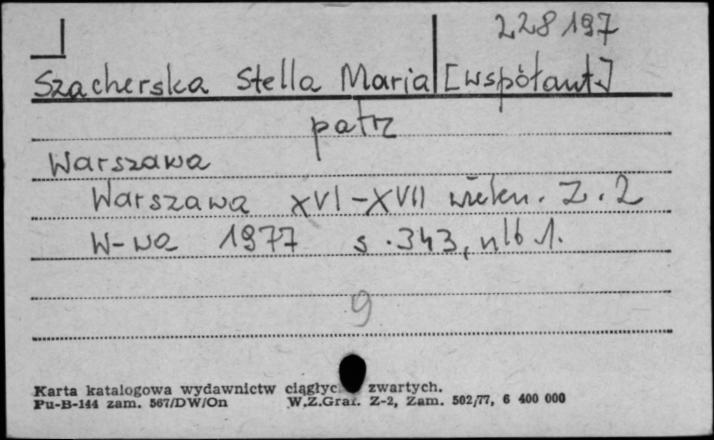 228197
Szacherska Stella Maria [współaut.]
patrz
Warszawa
Warszawa XVI-XVII wieku. Z. 2
W-wa 1977 s. 343, nlb 1.
9
Karta katalogowa wydawnictw ciągłyc zwartych.
Pu-B-144 zam. 567/DW/On W.Z.Graf. Z-2, Zam. 502/77, 6 400 000